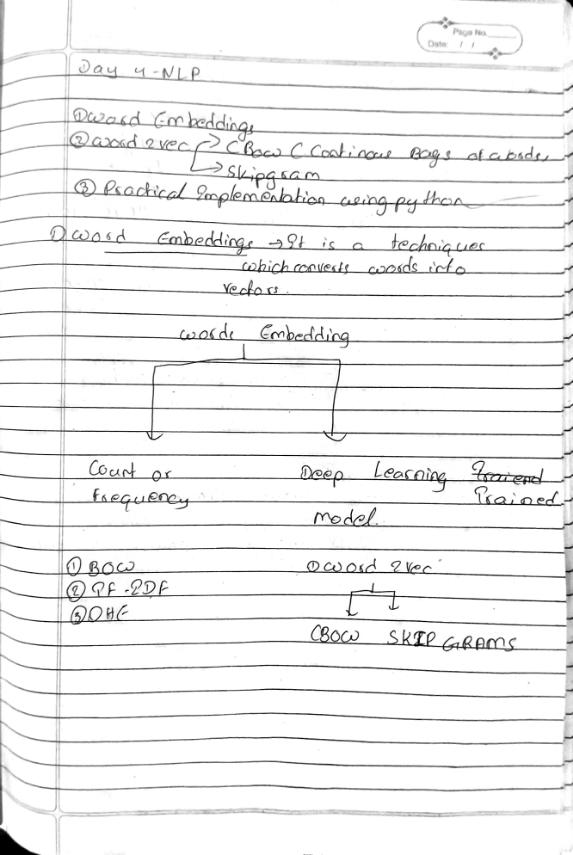 Page No.
Date: / /
Day 4-NLP
① Word Embeddings
② Word 2vec → CBOW ( Continous Bags of words
→ Skipgram
③ Practical Implementation using python
① Word Embeddings → It is a techniques
which converts words into
vectors.
words Embedding
Count or Deep Learning Traiend
frequency Trained
model.
① BOW ① Word 2vec
② TF-IDF
③ OHE
CBOW SKIP GRAMS